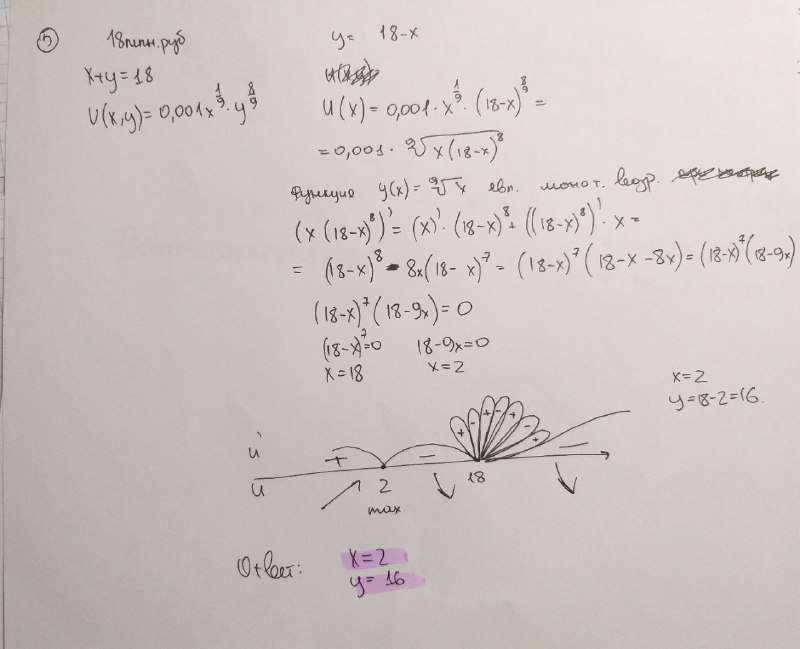 5
18 млн.руб
x+y=18
U(x,y)=0,001x^(1/9)·y^(8/9)
y= 18-x
U(x)=0,001·x^(1/9)·(18-x)^(8/9)=
=0,001·⁹√(x(18-x)^8)
Функция y(x)=⁹√x явл. монот. возр.
(x(18-x)^8)'=(x)'·(18-x)^8+((18-x)^8)'·x=
= (18-x)^8-8x(18-x)^7=(18-x)^7(18-x-8x)=(18-x)^7(18-9x)
(18-x)^7(18-9x)=0
(18-x)^7=0 18-9x=0
x=18 x=2
x=2
y=18-2=16.
+ - + - + - + -
u'
u
2 18
max
Ответ: x=2
y=16